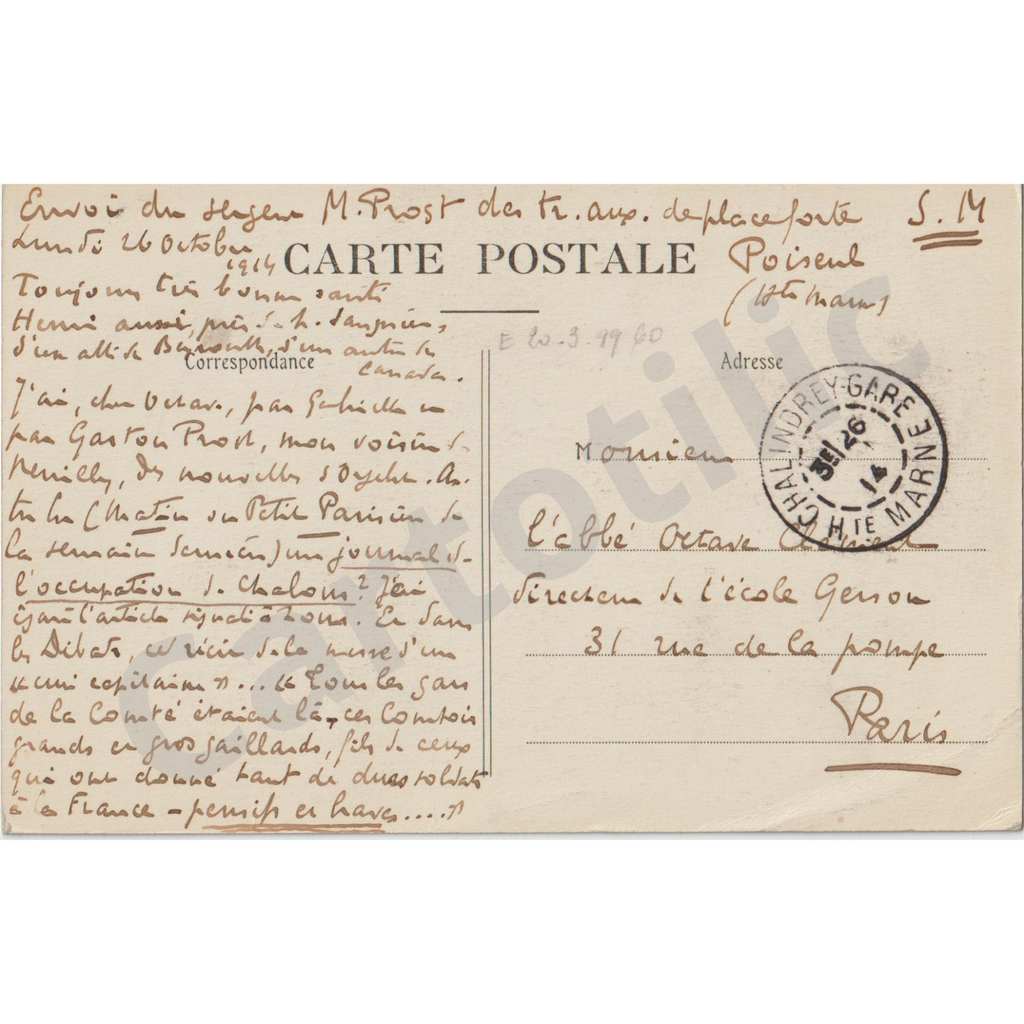 Envoi du sergent M. Prost des tr. aux. de place forte S. M
Lundi 26 Octobre
1914
CARTE POSTALE
Poiseul
(Hte Marne)
Toujours très bonne santé
Henri aussi, près de
d'un
Canada.
E 20-3-99 60
Correspondance
Adresse
J'ai, cher Octave, par Gabrielle et
par Gaston Prost, mon voisin de
des nouvelles d'
tu lu (Matin ou Petit Parisien de
la semaine dernière) un journal de
l'occupation de Chalons? J'ai
égaré l'article Et dans
les Débats, ce récit de la messe d'un
"... "Tous les gars
de la Comté étaient là, ces Comtois
grands et gros gaillards, fils de ceux
qui ont donné tant de durs soldats
à la France - pensifs et haves ...."
CHALINDREY-GARE
26
14
HTE MARNE
Monsieur
l'abbé Octave
directeur de l'école Gerson
31 rue de la pompe
Paris
Cartotilic